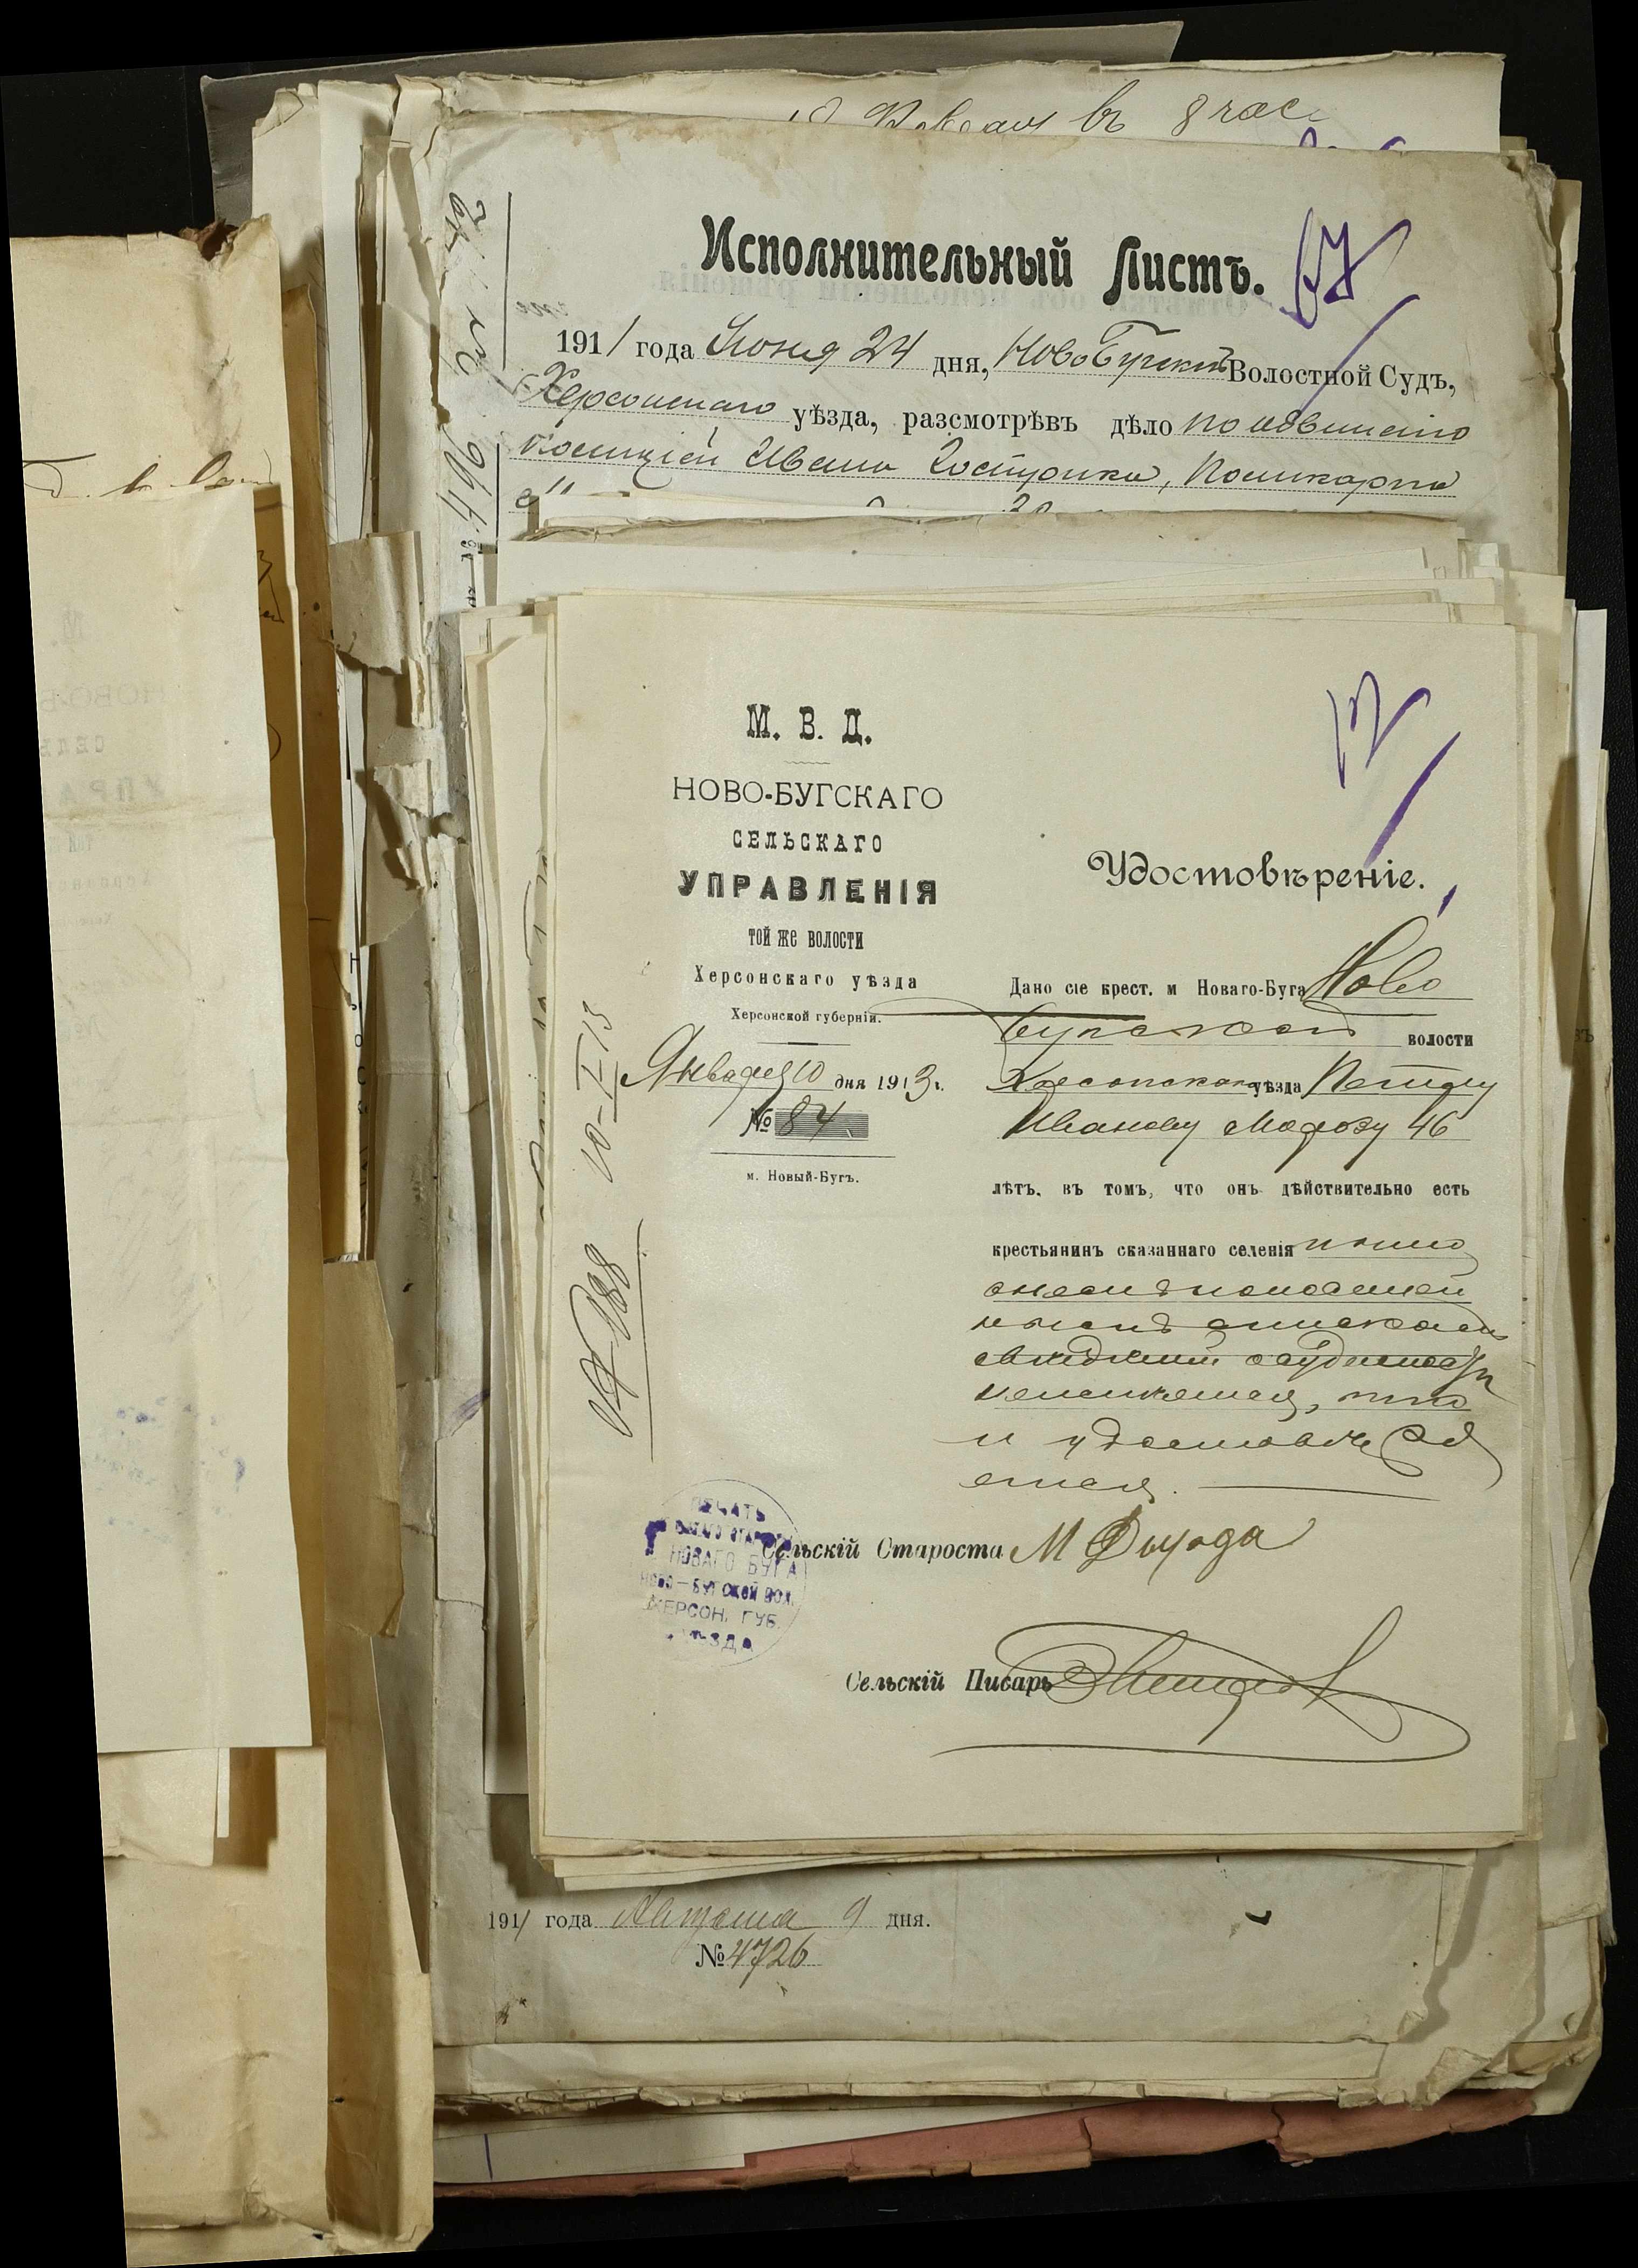 въ 8 час
Исполнительный Листъ.
67
1911 года Июня 24 дня, Ново Бугскій Волостной Судъ,
Херсонскаго уѣзда, разсмотрѣвъ дѣло по обвиненію
Ивана Поликарпа
496
М. В. Д.
НОВО-БУГСКАГО
СЕЛЬСКАГО
УПРАВЛЕНІЯ
ТОЙ ЖЕ ВОЛОСТИ
Херсонскаго уѣзда
Херсонской губерніи.
Января 10 дня 1913 г.
№ 84
м. Новый-Бугъ.
10-I-13
№ 188
12
Удостовѣреніе.
Дано сіе крест. м Новаго-Буга Ново
Бугской волости
Херсонскаго уѣзда Петру
Иванову Морозу 46
лѣтъ, въ томъ, что онъ дѣйствительно есть
крестьянинъ сказаннаго селенія
свѣденій о судимости
не имѣется, что
и удостовѣря
ется.
Сельскій Староста М
ПЕЧАТЬ
НОВАГО БУГА
НОВО-БУГСКОЙ ВОЛ.
ХЕРСОН. ГУБ.
УѢЗДА
Сельскій Писарь
1911 года Августа 9 дня.
№ 4726